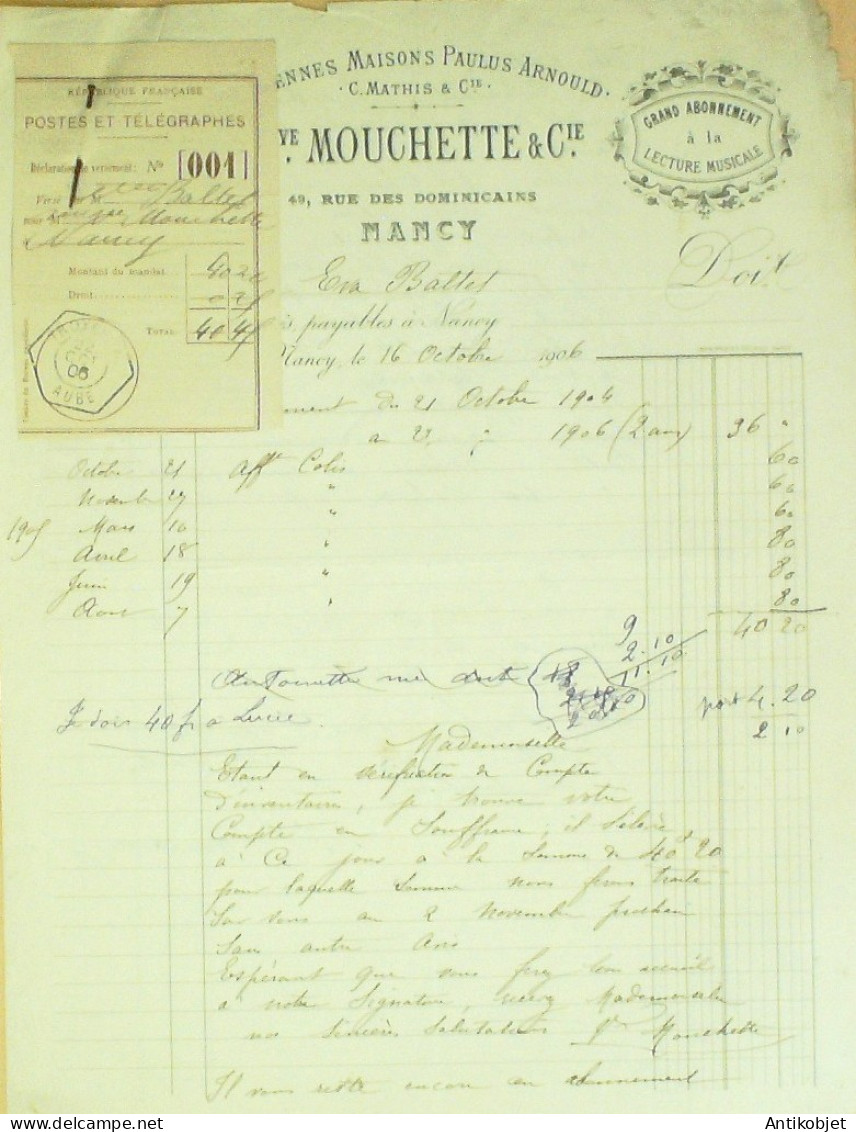 ENNES MAISONS PAULUS ARNOULD
C. MATHIS & CIE
VE MOUCHETTE & CIE
49, RUE DES DOMINICAINS
NANCY
GRAND ABONNEMENT
à la
LECTURE MUSICALE
RÉPUBLIQUE FRANÇAISE
POSTES ET TÉLÉGRAPHES
Déclaration de versement: No [001]
Versé Baltet
pour M Mouchette
à Nancy
Montant du mandat 40 20
Droit 0 25
TOTAL 40 45
06
AUBE
Doit
Eva Baltet
payables à Nancy
Nancy, le 16 Octobre 1906
ment du 21 Octobre 1904
au 21 " 1906 (2 ans) 36 "
Octobre 21 Afft Colis 60
Novembre 27 " 60
1905 Mars 10 " 60
Avril 18 " 80
Juin 19 " 80
Aout 7 " 80
40 20
9
2.10
11.10
Antoinette me doit
port 4.20
2 10
Je dois 40 f à Lucie.
Mademoiselle
Etant en vérification de Compte
d'inventaires, je trouve votre
Compte en Souffrance, il s'élève
à Ce jour à la Somme de 40f20
pour laquelle Somme nous ferons traite
Sur vous au 2 Novembre prochain
Sans autre Avis
Espérant que vous ferez bon accueil
à notre Signature, recevez Mademoiselle
nos Sincères Salutations Vve Mouchette
Il vous reste encore un abonnement
Antikobjet